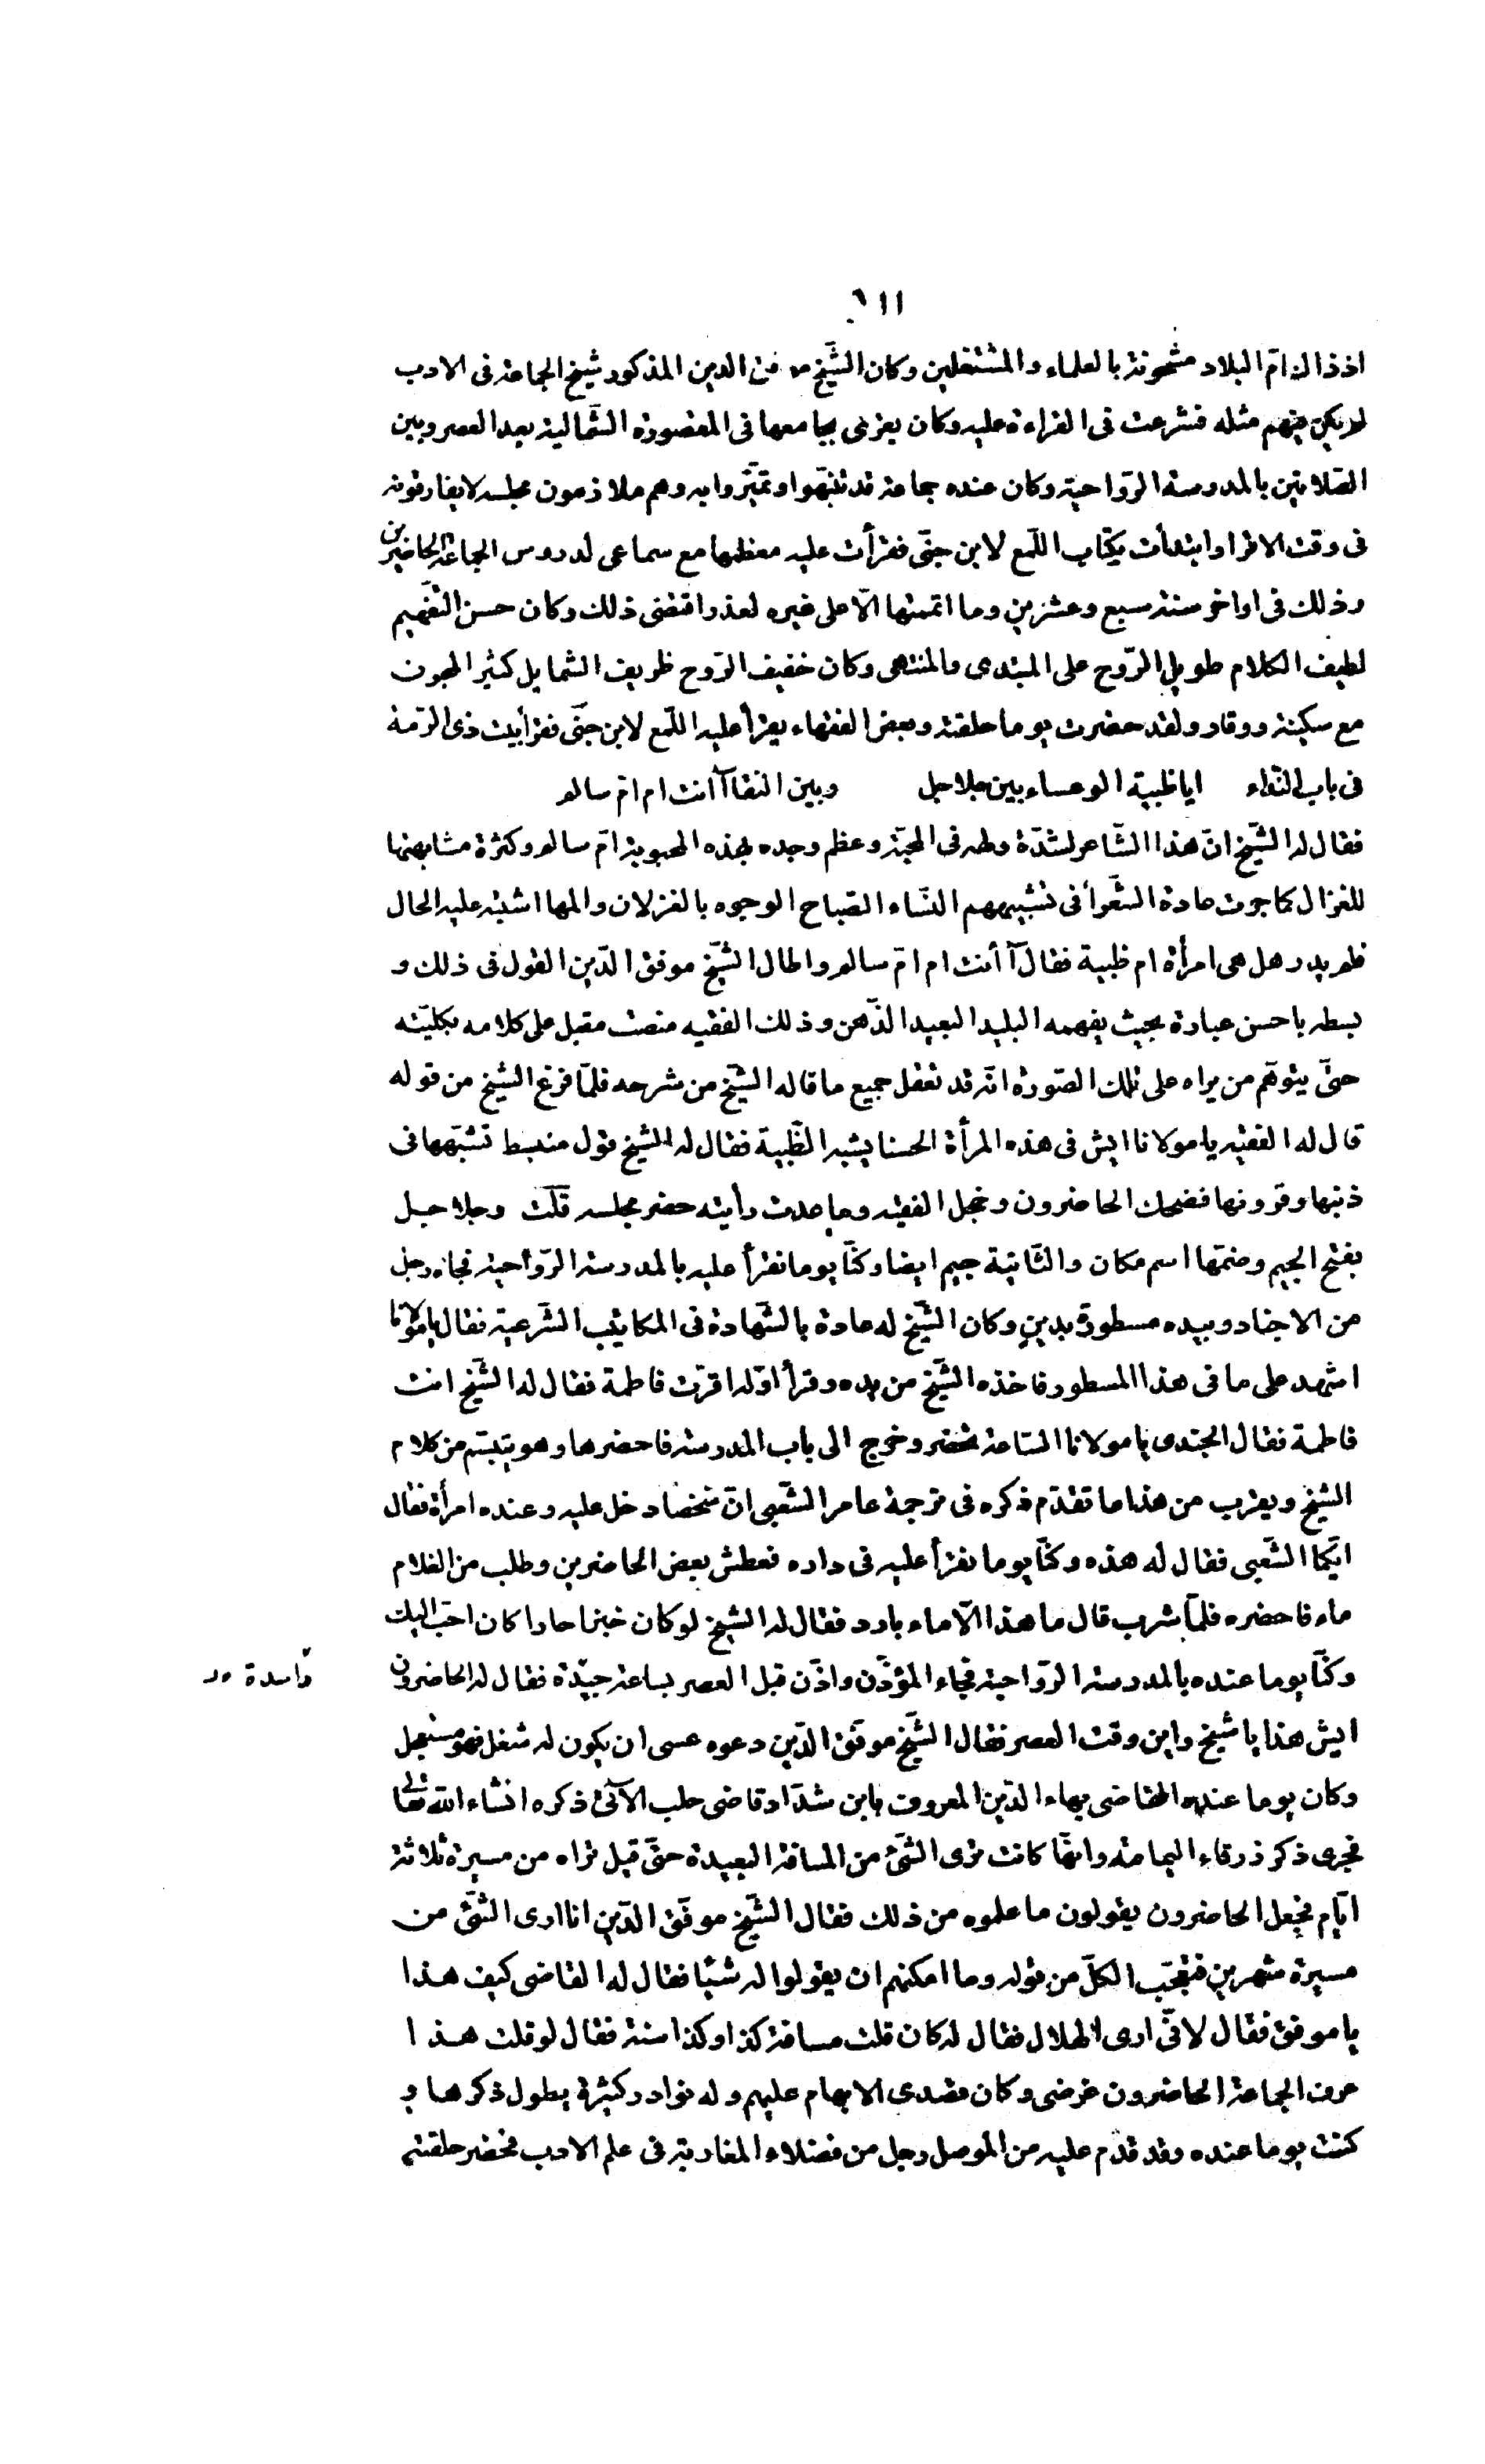 ٦١١
اذ ذاك امّ البلاد مشحونة بالعلماء والمشتغلين وكان الشّيخ موفق الدين المذكور شيخ الجماعة فى الادب
لم يكن فيهم مثله فشرعت فى القراءة عليه وكان يقرئ بجامعها فى المقصورة الشّمالية بعد العصر وبين
الصّلاتين بالمدرسة الرّواحيّة وكان عنده جماعة قد تنبّهوا وتميّزوا به وهم ملازمون مجلسه لا يفارقونه
فى وقت الاقرا وابتدأت بكتاب اللّمع لابن جنّى فقرأت عليه معظمها مع سماعى لدروس الجماعة الحاضرين
وذلك فى اواخر سنة سبع وعشرين وما اتممتها الّا على غيره لعذر اقتضى ذلك وكان حسن التفهيم
لطيف الكلام طويل الرّوح على المبتدى والمنتهى وكان خفيف الرّوح ظريف الشمايل كثير المجون
مع سكينة ووقار ولقد حضرت يوما حلقته وبعض الفقهاء يقرأ عليه اللّمع لابن جنّى فقرأ بيت ذى الرّمة
فى باب النّداء ايا ظبية الوعساء بين جلاجل وبين النقا آأنت ام امّ سالم
فقال له الشّيخ انّ هذا الشّاعر لشدّة ولهه فى المحبّة وعظم وجده بهذه المحبوبة امّ سالم وكثرة مشابهتها
للغزال كما جرت عادة الشّعرأ فى تشبيههم النّساء الصّباح الوجوه بالغزلان والمها اشتبه عليه الحال
فلم يدر هل هى امرأة ام ظبية فقال آأنت ام امّ سالم واطال الشّيخ موفق الدّين القول فى ذلك و
بسطه باحسن عبارة بحيث يفهمه البليد البعيد الذّهن وذلك الفقيه منصت مقبل على كلامه بكليّته
حتّى يتوهّم من يراه على تلك الصّورة انّه قد تعقل جميع ما قاله الشّيخ من شرحه فلمّا فرغ الشيخ من قوله
قال له الفقيه يا مولانا ايش فى هذه المرأة الحسنا يشبه الظّبية فقال له الشيخ قول منبسط تشبّهها فى
ذنبها وقرونها فضحك الحاضرون وخجل الفقيه وما عدت رأيته حضر مجلسه قلت وجلاجل
بفتح الجيم وضمّها اسم مكان والثّانية جيم ايضا وكنّا يوما نقرأ عليه بالمدرسة الرّواحية فجاءه رجل
من الاجناد وبيده مسطورة بدين وكان الشّيخ له عادة بالشّهادة فى المكاتيب الشّرعيّة فقال يا مولانا
اشهد على ما فى هذا المسطور فاخذه الشّيخ من يده وقرأ اوّله اقرّت فاطمة فقال له الشّيخ انت
فاطمة فقال الجندى يا مولانا السّاعة تحضر وخرج الى باب المدرسة فاحضرها وهو يتبسّم من كلام
الشيخ ويقرب من هذا ما تقدّم ذكره فى ترجمة عامر الشّعبى انّ شخصا دخل عليه وعنده امرأة فقال
ايّكما الشّعبى فقال له هذه وكنّا يوما نقرأ عليه فى داره فعطش بعض الحاضرين وطلب من الغلام
ماء فاحضره فلمّا شرب قال ما هذا الّا ماء بارد فقال له الشيخ لو كان خبزا حارا كان احبّ اليك
وكنّا يوما عنده بالمدرسة الرّواحية فجاء المؤذّن واذّن قبل العصر بساعة جيّدة فقال له الحاضرون
ايش هذا يا شيخ واين وقت العصر فقال الشّيخ موفّق الدّين دعوه عسى ان يكون له شغل فهو مستعجل
وكان يوما عنده القاضى بهاء الدّين المعروف بابن شدّاد قاضى حلب الآتى ذكره انشاء اللّه تعالى
فجرى ذكر زرقاء اليمامة وانّها كانت ترى الشّئ من المسافة البعيدة حتّى قيل تراه من مسيرة ثلاثة
ايّام فجعل الحاضرون يقولون ما علموه من ذلك فقال الشّيخ موفّق الدّين انا ارى الشّئ من
مسيرة شهرين فتعجّب الكلّ من قوله وما امكنهم ان يقولوا له شيئا فقال له القاضى كيف هذا
يا موفق فقال لانّى ارى الهلال فقال له كان قلت مسافة كذا وكذا سنة فقال لو قلت هذا
عرف الجماعة الحاضرون غرضى وكان قصدى الابهام عليهم وله نوادر كثيرة يطول ذكرها و
كنت يوما عنده وقد قدم عليه من الموصل رجل من فضلاء المغاربة فى علم الادب فحضر حلقته